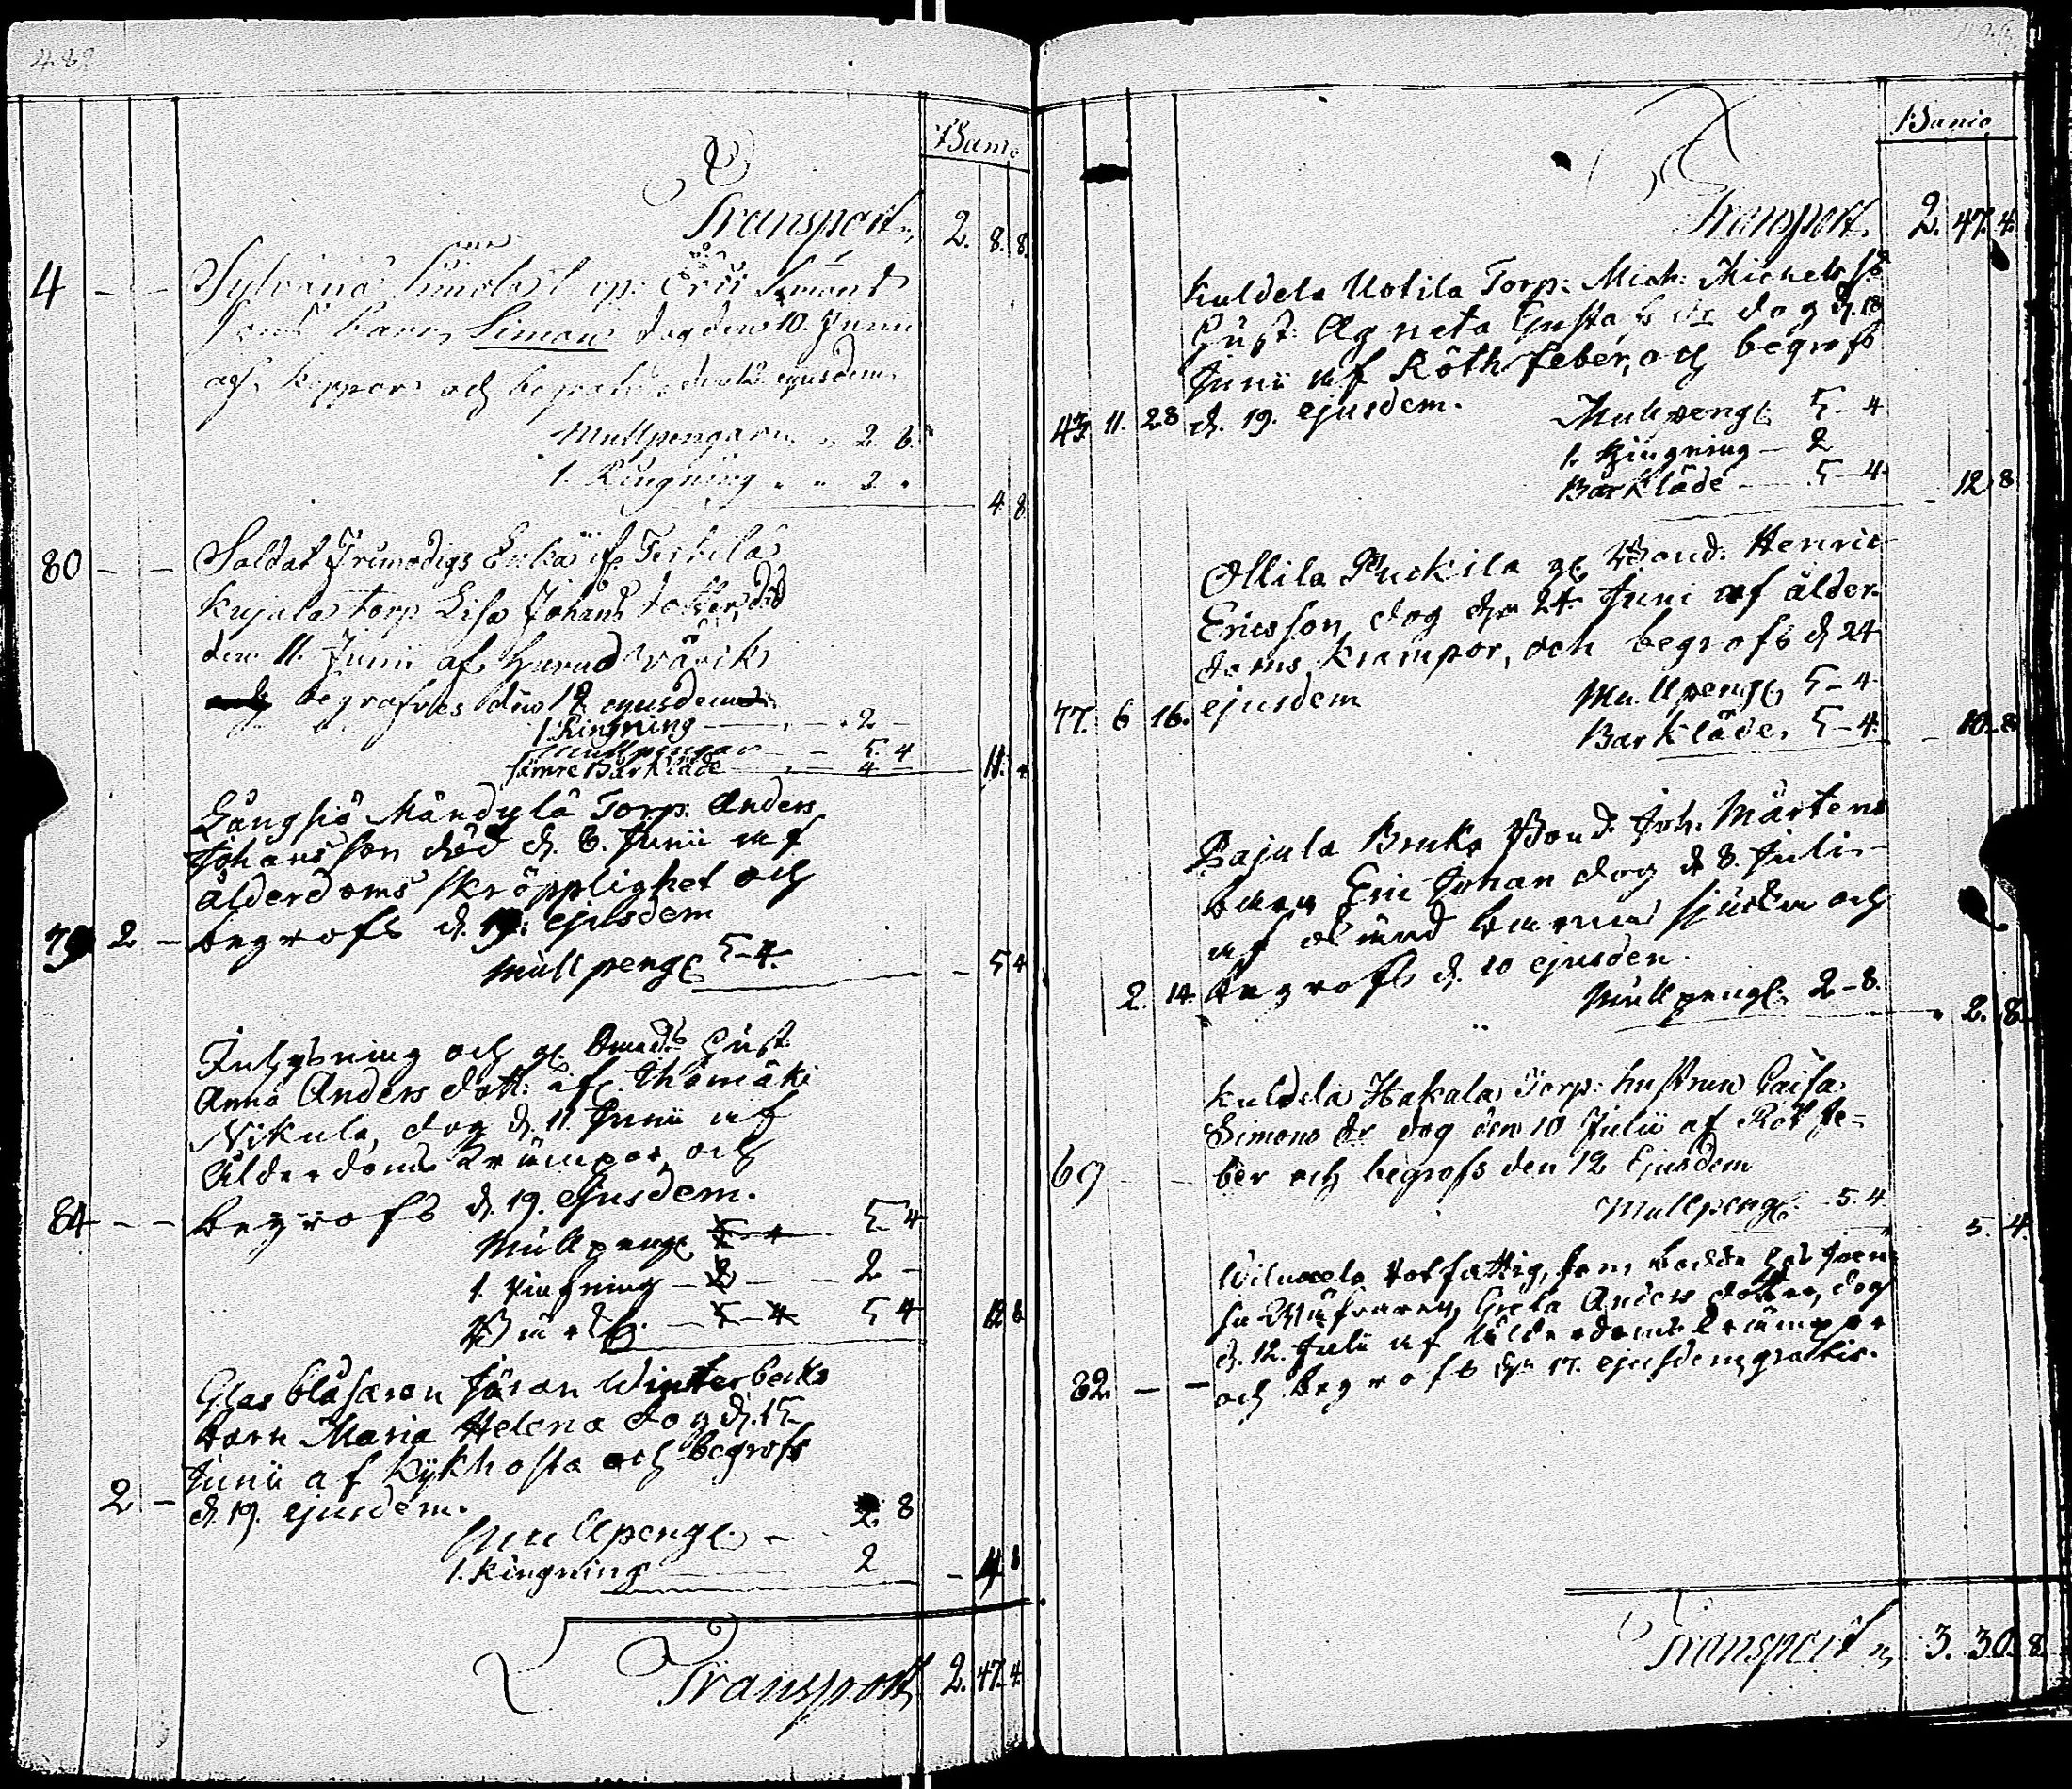 Banco
Transport 2. 8. 8.
4 - - Sylvänä Simola Torp: Eric Simons
sons barn Simon dog den 10. Junii
af koppor och begrafves den 12 ejusdem
Mullpengar 2. 8.
1. Ringning 2
4 8
80 - - Soldat Enka
Kujala torp Lisa Johans dotter död
den 11 Junii af
begrafves den 19 ejusdem
1. Ringning 2
Mullpengar 5. 4
Sämre Barkläde 4
11. 4
Långsiö Mändylä Torp. Anders
Johansson död d. 6. Junii af
ålderdoms skröpplighet och
79 2 - begrofs d. 19: ejusdem
Mullpeng 5-4.
5 4
och
Anna Anders dott: if
Nikula, dog d. 11 Junii af
Ålderdoms Krämpor, och
84 - - begrofs d. 19. ejusdem.
Mullpeng 5 4
1. Ringning 2
5 4
12 8
Glasblåsaren Jöran Winterbecks
barn Maria Helena dog d. 15
Junii af Kykhosta och begrofs
2 - d. 19. ejusdem.
Mullpeng 2. 8
1. Ringning 2
4 8
Transport 2. 47. 4.
Banco
Transport 2. 47. 4.
Kuldela Uotila Torp: Mich: Michels so
Hust: Agneta Gustafs dr dog d. 18
Junii af Röthfeber, och begrofs
43 11. 28 d. 19. ejusdem.
Mullpeng 5-4
1. Ringning - 2
Barkläde 5-4
12 8
Ollila Puckila Bond: Henric
Ericsson dog den 24 Juni af ålder-
doms krampor, och begrofs d 24
77. 6 16. ejusdem
Mullpeng 5-4
Barkläde 5-4.
10. 8
Pajula Bruks Bond. Joh. Mårtens
barn Eric Johan dog d 8. Juli
af okänd barna sjukdom och
2. 14. begrofs d. 10 ejusdem.
Mullpeng. 2-8.
2. 8.
Kuldela Hakala Torp: hustrun Caisa
Simons dr dog den 10 Julii af Rötfe-
69 - - ber och begrofs den 12 Ejusdem
Mullpeng 5. 4.
5. 4.
Rotfattig, som bodde hos
Greta Anders dotter, dog
d. 12. Julii af Ålderdoms Krämpor
82 - - och begrofs den 17. ejusdem gratis.
Transport 3. 30. 8